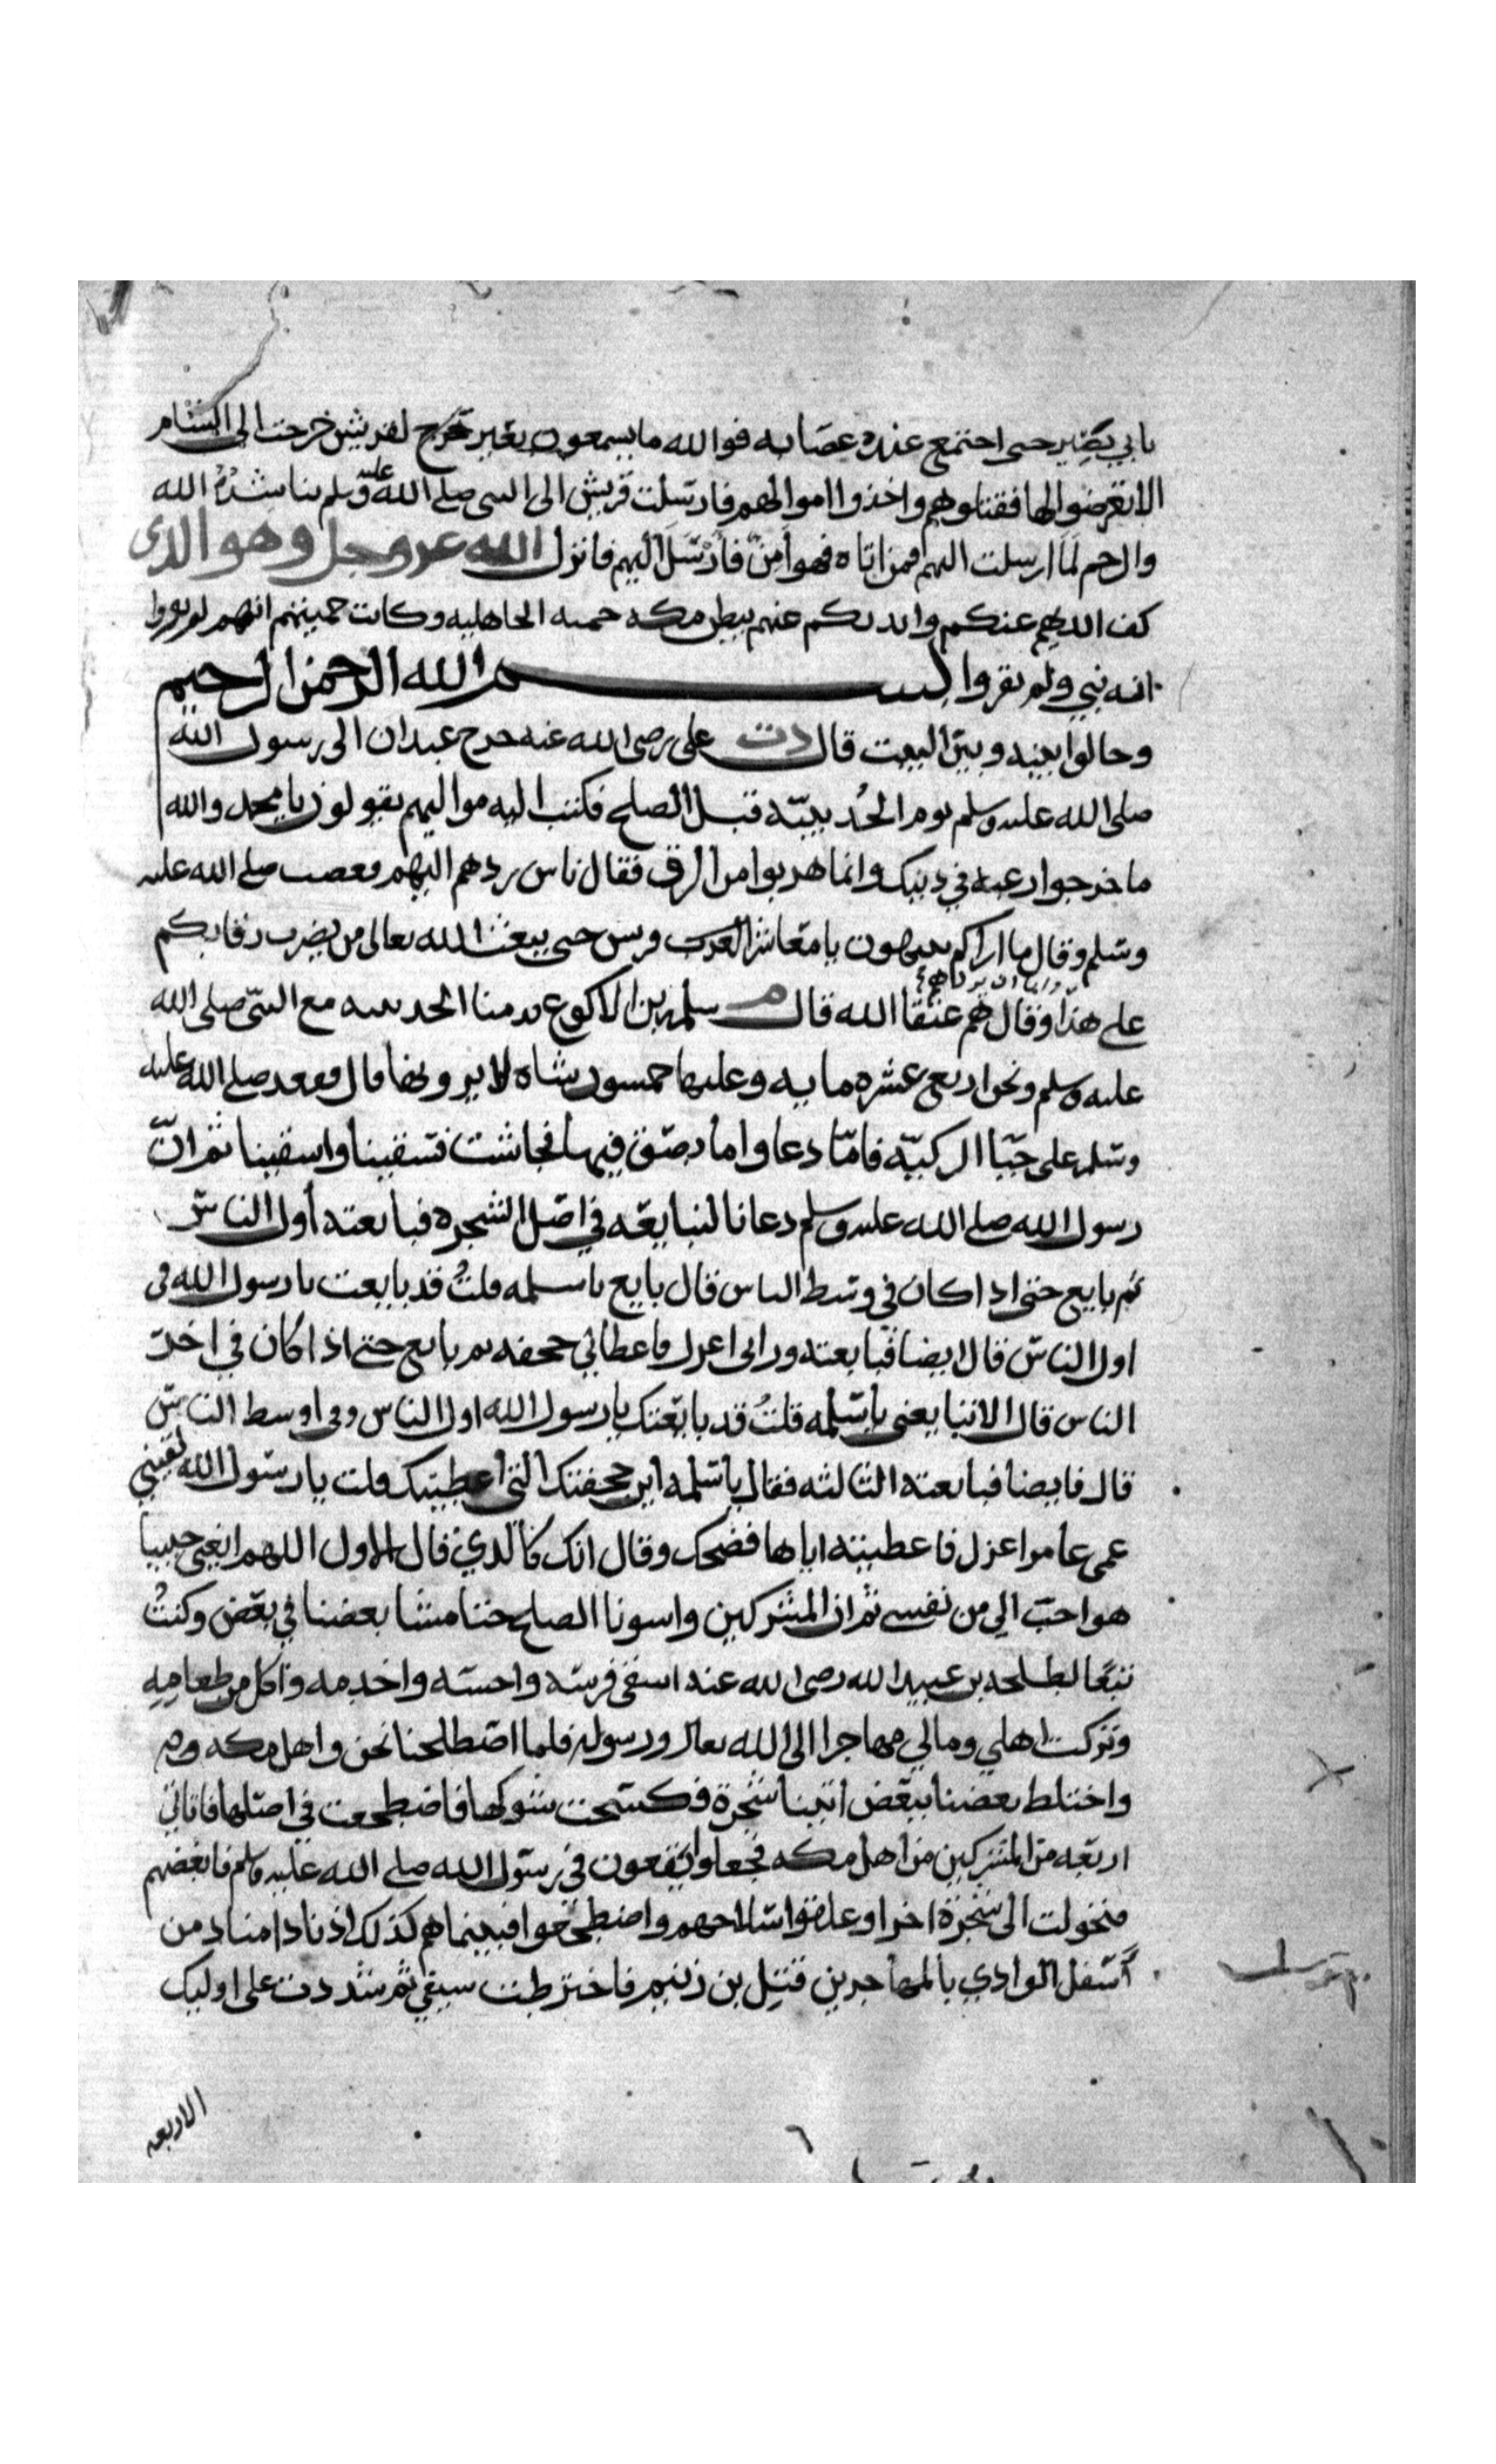 بابي بصير حتى اجتمع عنده عصابه فوالله ما يسمعون بعير تخرج لقريش خرجت الى الشام
الا تعرضوا لها فقتلوهم واخذوا اموالهم فارسلت قريش الى النبي صلى الله عليه وسلم يناشده الله
والرحم لما ارسلت اليهم فمن اتاه فهو آمن فارسل اليهم فانزل الله عز وجل وهو الذي
كف ايديهم عنكم وايديكم عنهم ببطن مكه حميه الجاهليه وكانت حميتهم انهم لم يقروا
انه نبي ولم يقروا بسم الله الرحمن الرحيم
وحالوا بينه وبين البيت قال دت علي رضي الله عنه خرج عبدان الى رسول الله
صلى الله عليه وسلم يوم الحديبيّه قبل الصلح فكتب اليه مواليهم يقولون يا محمد والله
ما خرجوا رغبه في دينك وانما هربوا من الرق فقال ناس ردهم اليهم فغضب صلى الله عليه
وسلم وقال ما اراكم تنتهون يا معاشر العرب قريش حتى يبعث الله تعالى من يضرب رقابكم
وابا ان يردهم
على هذا وقال هم عتقا الله قال م سلمه بن الاكوع قدمنا الحديبيه مع النبي صلى الله
عليه وسلم ونحن اربع عشره مايه وعليها خمسون شاه لا يرويها قال فقعد صلى الله عليه
وسلم على جبا الركيّه فامّا دعا واما بصق فيها فجاشت فسقينا واسقينا ثم انّ
رسول الله صلى الله عليه وسلم دعانا لنبايعه في اصل الشجره فبايعته أول الناس
ثم بايع حتى اذا كان في وسط الناس قال بايع ياسلمه قلتُ قد بايعت يا رسول الله في
اول الناس قال ايضا فبايعته وراني اعزل فاعطاني جحفه ثم بايع حتى اذا كان في اخر
الناس قال الا تبايعني ياسلمه قلتُ قد بايعتك يا رسول الله اول الناس وفي اوسط الناس
قال فايضا فبايعته الثالثه فقال ياسلمه اين جحفتك التي أعطيتك قلت يا رسول الله لقيني
عمي عامرا عزل فاعطيته اياها فضحك وقال انك كالذي قال الاول اللهم ابغني حبيبا
هو احبّ الي من نفسي ثم ان المشركين واسونا الصلح حتا مشا بعضنا في بعض وكنتُ
تبعًا لطلحه بن عبيد الله رضي الله عنه اسقي فرسه واحسّه واخدمه واكل من طعامهِ
وتركت اهلي ومالي مهاجرا الى الله تعالى ورسوله فلما اصطلحنا نحن واهل مكه
واختلط بعضنا ببعض اتينا شجرة فكسحت شوكها فاضطجعت في اصلها فاتاني
اربعه من المشركين من اهل مكه فجعلوا يقعون في رسول الله صلى الله عليه وسلم فابغضهم
فتحولت الى شجرة اخرا وعلقوا سلاحهم واضطجعوا فبينما هم كذلك اذ نادا مناد من
أسفل الوادي يا للمهاجرين قتل بن زنيم فاخترطت سيفي ثم شددت على اوليك
الاربعه